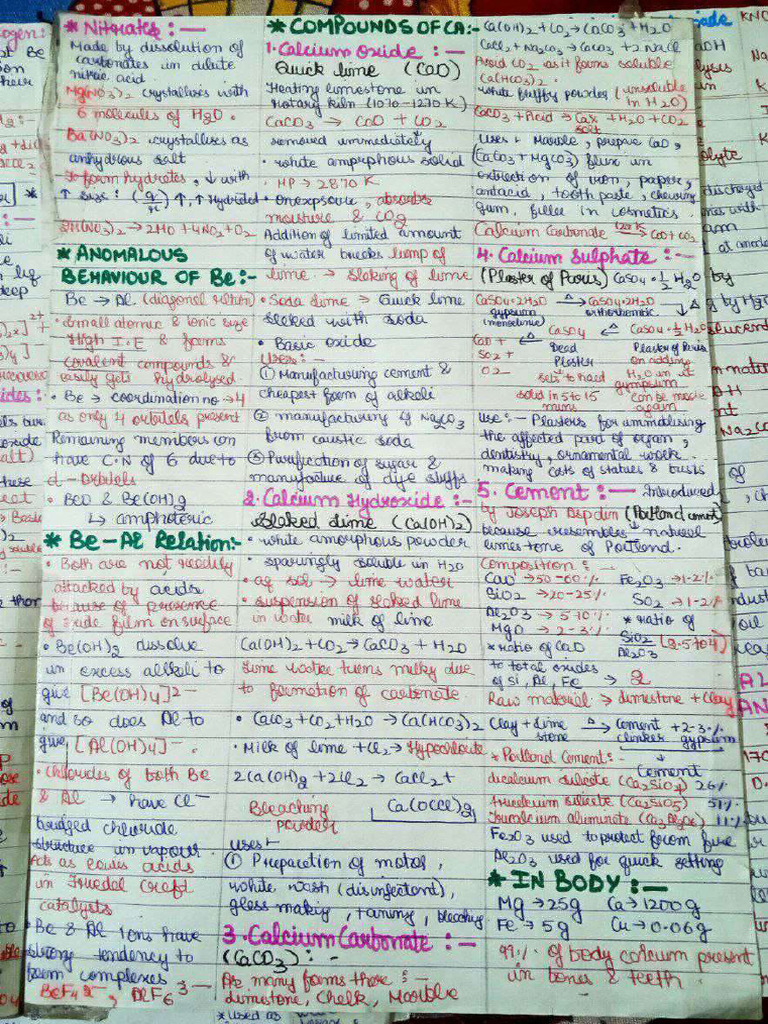 * Nitrates :—
Made by dissolution of
carbonates in dilute
nitric acid.
Mg(NO3)2 crystallises with
6 molecules of H2O.
Ba(NO3)2 crystallises as
anhydrous salt
To form hydrates, ↓ with
↑ size:
2M(NO3)2 → 2MO + 4NO2 + O2
* ANOMALOUS
BEHAVIOUR OF Be:-
Be → Al (diagonal relation)
• Small atomic & ionic size
High I.E & forms
covalent compounds &
easily gets hydrolysed.
• Be → coordination no → 4
as only 4 orbitals present
Remaining members can
have C.N of 6 due to
d - Orbitals
• BeO & Be(OH)2
↳ amphoteric
* Be-Al Relation:-
• Both are not readily
attacked by acids
because of presence
of oxide film on surface
• Be(OH)2 dissolve
in excess alkali to
give [Be(OH)4]2-
and so does Al to
give [Al(OH)4]-.
• Chlorides of both Be
& Al → have Cl-
bridged chloride
structure in vapour.
Act as lewis acids
in Friedal Craft
catalysts
• Be & Al Ions have
strong tendency to
form complexes
BeF4 2-, AlF6 3-
* COMPOUNDS OF CA:-
1. Calcium Oxide :-
Quick lime (CaO)
Heating limestone in
Rotary kiln (1070-1270 K)
CaCO3 → CaO + CO2
removed immediately
• white amorphous solid
MP → 2870 K
• On exposure, absorbs
moisture & CO2
Addition of limited amount
of water breaks lump of
lime → Slaking of lime
• Soda lime → Quick lime
slaked with soda
• Basic oxide
Uses:-
① Manufacturing cement &
cheapest form of alkali
② manufacturing of Na2CO3
from caustic soda
③ Purification of sugar &
manufacture of dye stuffs
2. Calcium Hydroxide :-
Slaked lime (Ca(OH)2)
• white amorphous powder
• sparingly soluble in H2O
• aq sol → lime water
• suspension of slaked lime
in water milk of lime
Ca(OH)2 + CO2 → CaCO3 + H2O
Lime water turns milky due
to formation of carbonate
• CaCO3 + CO2 + H2O → Ca(HCO3)2
• Milk of lime + Cl2 → Hypochlorite
2Ca(OH)2 + 2Cl2 → CaCl2 +
Bleaching Ca(OCl)2
powder
uses:-
① Preparation of motar,
white wash (disinfectant),
glass making, tanning, bleaching
3. Calcium Carbonate :-
(CaCO3) :-
As many forms those :-
limestone, Chalk, Marble
Ca(OH)2 + CO2 → CaCO3 + H2O
CaCl2 + Na2CO3 → CaCO3 + 2NaCl
Avoid CO2 as it forms soluble
Ca(HCO3)2.
white fluffy powder (unsoluble
in H2O)
CaCO3 + Acid → Cax + H2O + CO2
salt
uses → Marble, prepare CaO,
(CaCO3 + MgCO3) flux in
extraction of iron, paper,
antacid, tooth paste, chewing
gum, filler in cosmetics.
Calcium Carbonate → CaO + CO2
4. Calcium Sulphate :-
(Plaster of Paris) CaSO4 • ½ H2O
CaSO4•2H2O →Δ CaSO4•2H2O
gypsum orthorhombic ↓Δ
(monoclinic)
CaO + ←Δ CaSO4 ←Δ CaSO4•½H2O
SO2 + Dead Plaster of Paris
O2 Plaster on adding
sets to hard H2O in it
solid in 5 to 15 gympsum
mins can be made
again
use:- Plasters for immobilising
the affected part of organ,
dentistry, ornamental work.
making casts of statues & busts
5. Cement :- Introduced
by Joseph Aspdin (Portland cement)
because resembles → natural
limestone of Portland.
Composition :-
CaO → 50-60% Fe2O3 → 1-2%
SiO2 → 20-25% SO2 → 1-2%
Al2O3 → 5-10%
MgO → 2-3%
* ratio of
SiO2/Al2O3 (2.5 to 4)
* ratio of CaO
to total oxides
of Si, Al, Fe → 2
Raw material → limestone + Clay
Clay + lime stone →Δ cement clinker + 2-3% gypsum
↓
Cement
* Portland Cement:-
dicalcium silicate (Ca2SiO4) 26%
tricalcium silicate (Ca3SiO5) 51%
Tricalcium aluminate (Ca3Al2O6) 11%
Fe2O3 used to protect from fire
Al2O3 used for quick setting
* IN BODY :-
Mg → 25g Ca → 1200g
Fe → 5g Cu → 0.06g
99% of body calcium present
in bones & teeth.